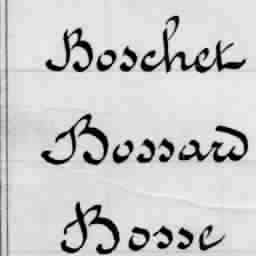 Boschet
Bossard
Bosse